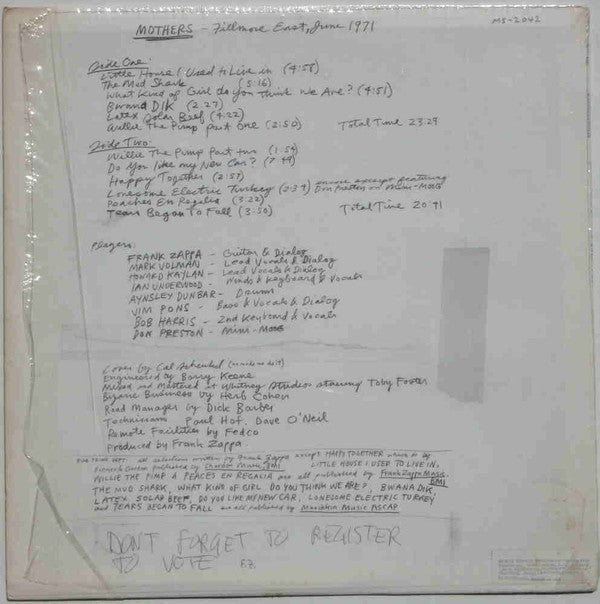 MOTHERS - Fillmore East, June 1971
MS-2042
Side One:
Little House I Used to Live in (4:58)
The Mud Shark (5:16)
What Kind of Girl do you Think We Are? (4:51)
Bwana Dik (2:27)
Latex Solar Beef (4:22)
Willie The Pimp part one (2:50) Total Time 23:29
Side Two:
Willie The Pimp Part two (1:54)
Do You like my New Car? (7:49)
Happy Together (2:57)
Lonesome Electric Turkey (2:34) encore excerpt featuring Don Preston on Mini-Moog
Peaches En Regalia (3:22)
Tears Began To Fall (3:50) Total Time 20:41
Players:
FRANK ZAPPA - Guitar & Dialog
MARK VOLMAN - Lead Vocals & Dialog
HOWARD KAYLAN - Lead Vocals & Dialog
IAN UNDERWOOD - Winds & Keyboard & Vocals
AYNSLEY DUNBAR - Drums
JIM PONS - Bass & Vocals & Dialog
BOB HARRIS - 2nd Keyboard & Vocals
DON PRESTON - Mini-Moog
Cover by Cal Schenkel
Engineered by Barry Keene
Mixed and Mastered at Whitney Studios starring Toby Foster
Bizarre Business by Herb Cohen
Road Manager by Dick Barber
Technicians Paul Hof, Dave O'Neil
Remote Facilities by Fedco
Produced by Frank Zappa
all selections written by Frank Zappa except HAPPY TOGETHER which is by
published by Chardon Music, BMI LITTLE HOUSE I USED TO LIVE IN,
WILLIE THE PIMP & PEACES EN REGALIA are all published by Frank Zappa Music, BMI
THE MUD SHARK, WHAT KIND OF GIRL DO YOU THINK WE ARE?, BWANA DIK
LATEX SOLAR BEEF, DO YOU LIKE MY NEW CAR, LONESOME ELECTRIC TURKEY
and TEARS BEGAN TO FALL are all published by Music ASCAP
DON'T FORGET TO REGISTER
TO VOTE F.Z.